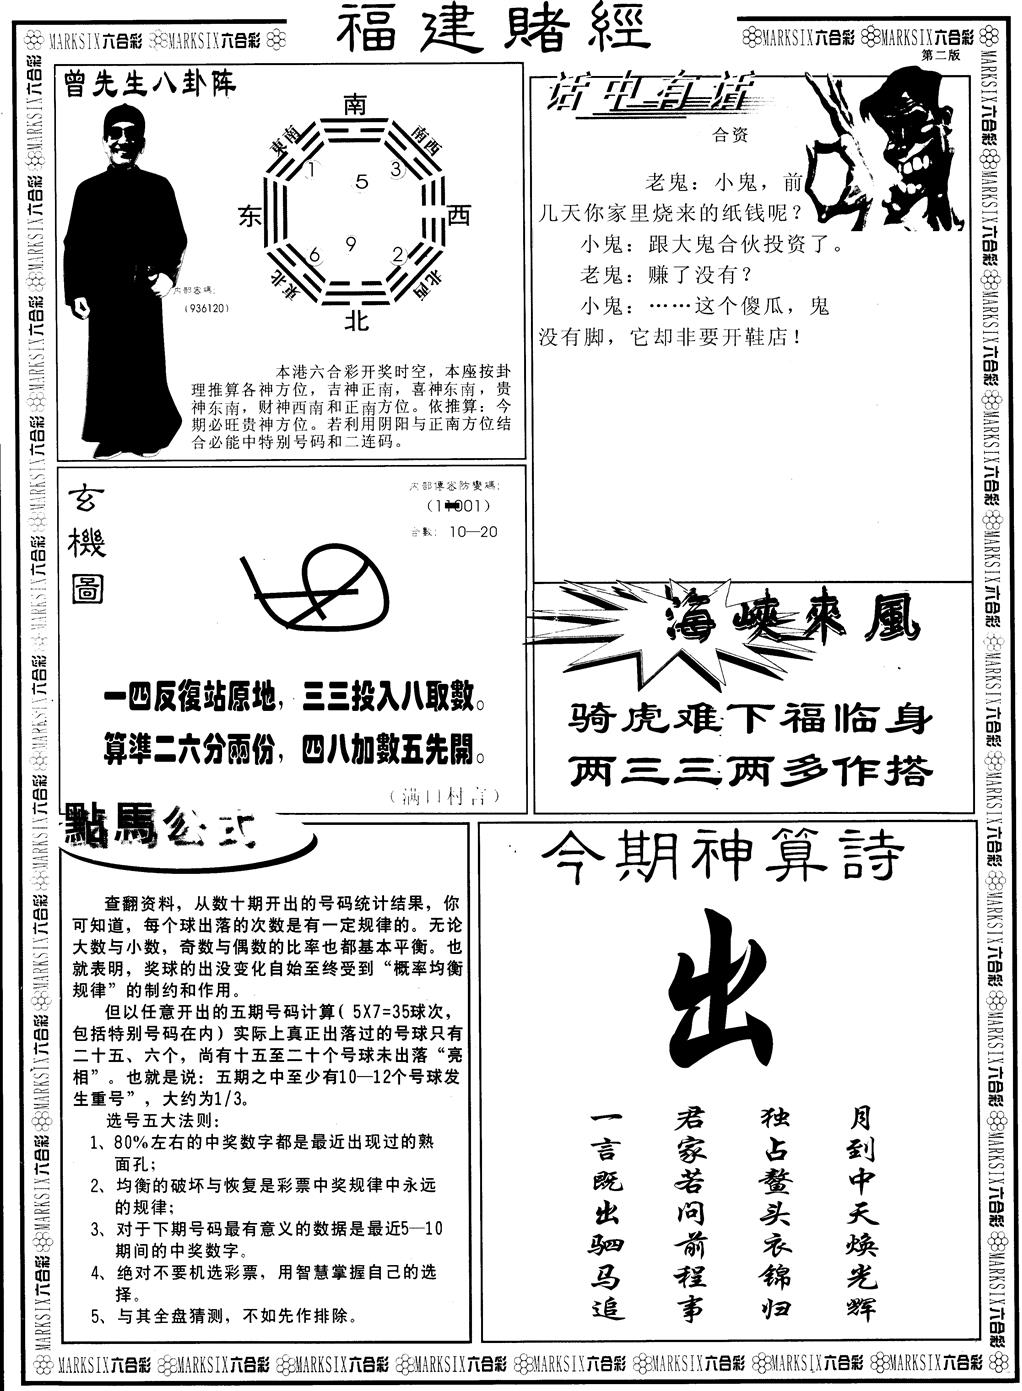 福建賭經
MARKSIX六合彩 MARKSIX六合彩
MARKSIX六合彩 MARKSIX六合彩
第二版
曾先生八卦阵
南
東南
南西
1
5
3
东
西
6
9
2
東北
北西
北
内部密碼:
(936120)
本港六合彩开奖时空，本座按卦
理推算各神方位，吉神正南，喜神东南，贵
神东南，财神西南和正南方位。依推算：今
期必旺贵神方位。若利用阴阳与正南方位结
合必能中特别号码和二连码。
话中有话
合资
老鬼：小鬼，前
几天你家里烧来的纸钱呢？
小鬼：跟大鬼合伙投资了。
老鬼：赚了没有？
小鬼：……这个傻瓜，鬼
没有脚，它却非要开鞋店！
玄機圖
内部傳密防變碼:
合數: 10—20
一四反復站原地，三三投入八取數。
算準二六分兩份，四八加數五先開。
（满口村言）
海峽來風
骑虎难下福临身
两三三两多作搭
點馬公式
查翻资料，从数十期开出的号码统计结果，你
可知道，每个球出落的次数是有一定规律的。无论
大数与小数，奇数与偶数的比率也都基本平衡。也
就表明，奖球的出没变化自始至终受到“概率均衡
规律”的制约和作用。
但以任意开出的五期号码计算( 5X7=35球次，
包括特别号码在内) 实际上真正出落过的号球只有
二十五、六个，尚有十五至二十个号球未出落“亮
相”。也就是说：五期之中至少有10—12个号球发
生重号”，大约为1/3。
选号五大法则：
1、80%左右的中奖数字都是最近出现过的熟
面孔；
2、均衡的破坏与恢复是彩票中奖规律中永远
的规律；
3、对于下期号码最有意义的数据是最近5—10
期间的中奖数字。
4、绝对不要机选彩票，用智慧掌握自己的选
择。
5、与其全盘猜测，不如先作排除。
今期神算詩
出
月到中天焕光辉
独占鳌头衣锦归
君家若问前程事
一言既出驷马追
MARKSIX六合彩 MARKSIX六合彩 MARKSIX六合彩 MARKSIX六合彩 MARKSIX六合彩 MARKSIX六合彩 MARKSIX六合彩 MARKSIX六合彩